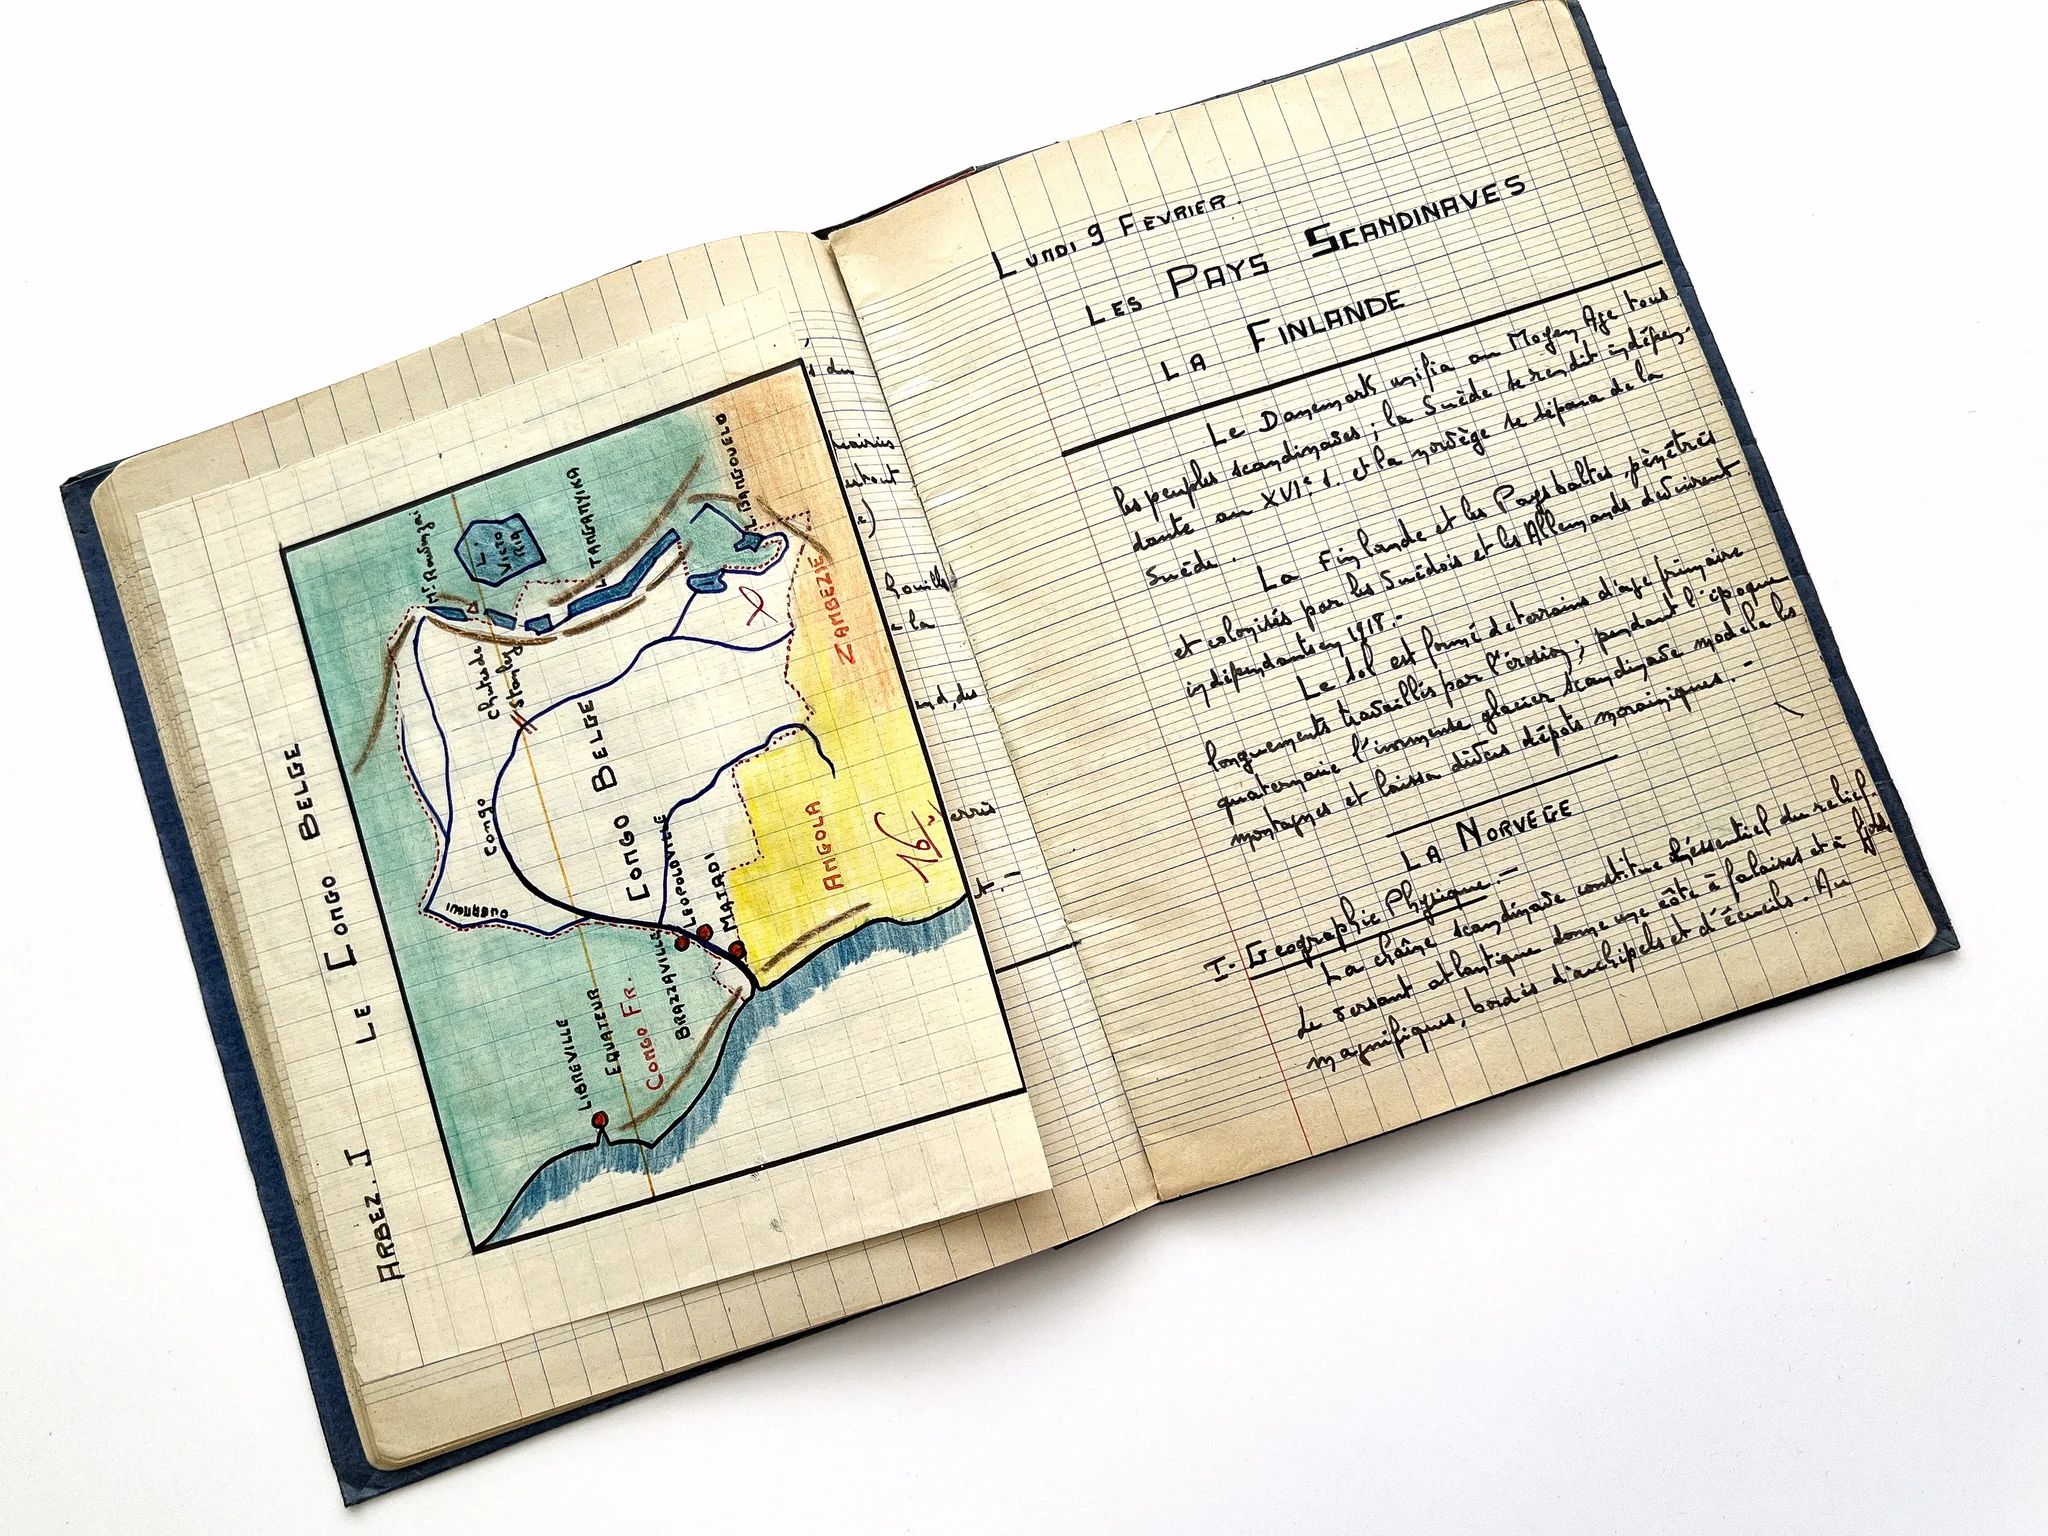 ARBEZ. J LE CONGO BELGE
Mt Rouwenzori
L. VICTO RIA
L. TANGANYIKA
L. BANGOUELO
Chutes de Stanley
ZAMBEZIE
Congo
CONGO BELGE
OUBANGUI
LEOPOLDVILLE
MATADI
ANGOLA
16
BRAZZAVILLE
LIBREVILLE
EQUATEUR
CONGO FR.
s du
surtout
e)
houille
la
nd, des
t. -
LUNDI 9 FÉVRIER.
LES PAYS SCANDINAVES
LA FINLANDE
Le Danemark unifia au Moyen Age tous
les peuples scandinaves ; la Suède se rendit indépen-
dante au XVIe s. et la norvège se sépara de la
Suède.
La Finlande et les Pays baltes, pénétrés
et colonisés par les Suédois et les Allemands devinrent
indépendants en 1918. -
Le sol est formé de terrains d'age primaire
longuements travaillés par l'érosion ; pendant l'époque
quaternaire l'immense glacier scandinave modela les
montagnes et laissa divers dépots morainiques. -
LA NORVEGE
I- Geographie Physique. -
La chaîne scandinave constitue l'éssentiel du relief.
Le versant atlantique donne une côte à falaises et à fjords
magnifiques, bordés d'archipels et d'écueils. Au